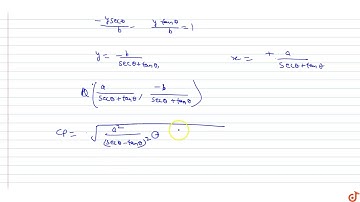 -ysecθ/b - ytanθ/b = 1
y = -b/(secθ+tanθ) x = +a/(secθ+tanθ)
Q(a/(secθ+tanθ), -b/(secθ+tanθ))
CP = √(a²/(secθ-tanθ)² +